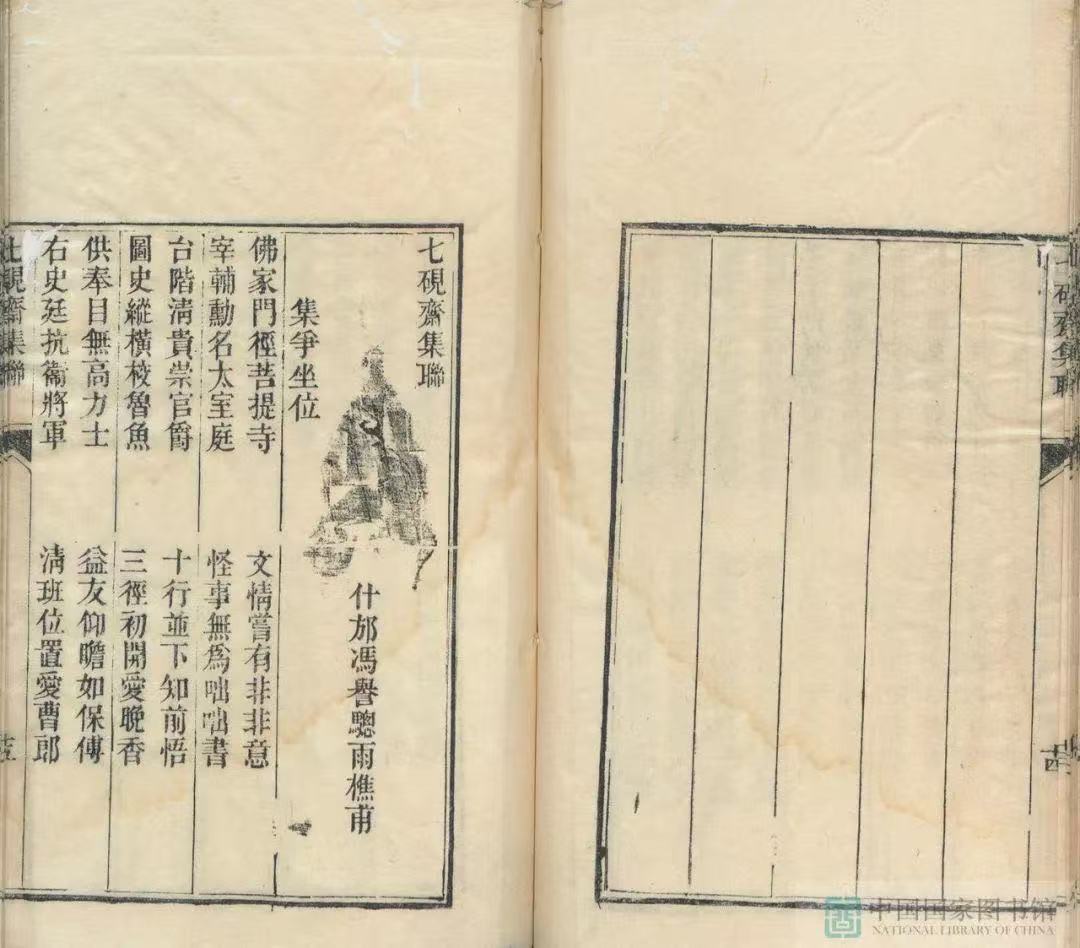 七硯齋集聯
十四
七硯齋集聯
什邡馮譽驄雨樵甫
集爭坐位
佛家門徑菩提寺 文情嘗有非非意
宰輔勳名太室庭 怪事無爲咄咄書
台階淸貴崇官爵 十行並下知前悟
圖史縱橫校魯魚 三徑初開愛晚香
供奉目無高力士 益友仰瞻如保傅
右史廷抗衞將軍 淸班位置愛曹郎
七硯齋集聯
中国国家图书馆
NATIONAL LIBRARY OF CHINA